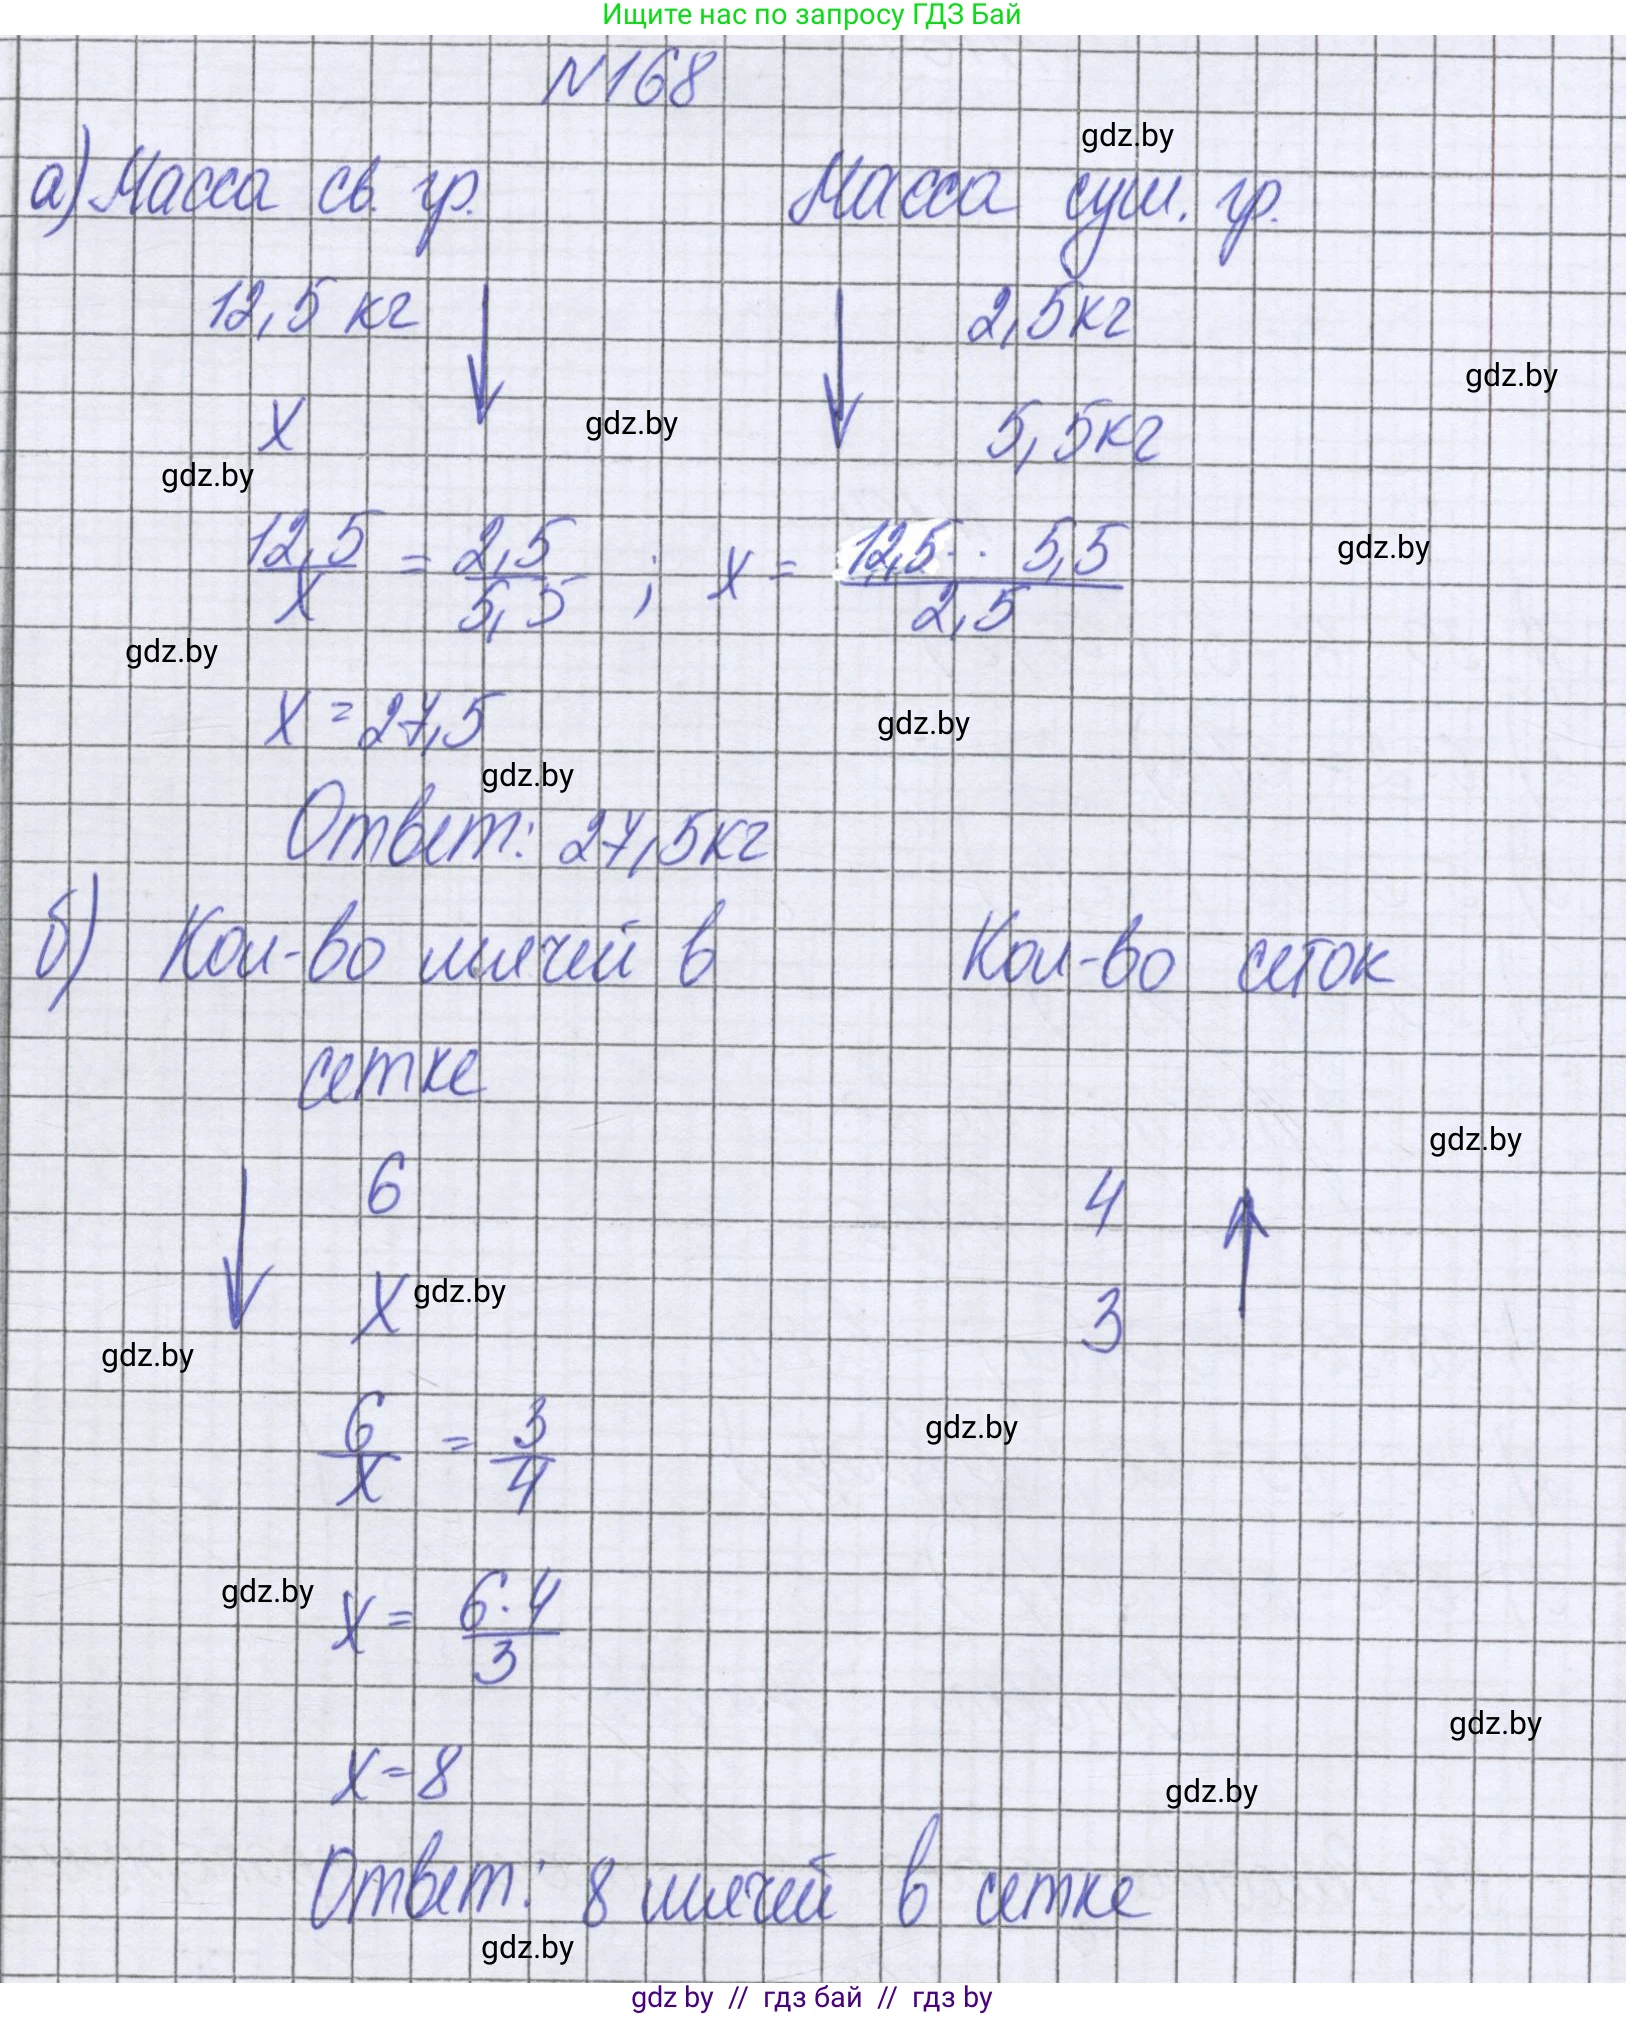 Ищите нас по запросу ГДЗ Бай
N168
gdz.by
а) Масса св. гр. Масса суш. гр.
12,5 кг 2,5кг
gdz.by
х 5,5кг
gdz.by
gdz.by
12,5/х = 2,5/5,5 ; х = 12,5 · 5,5/2,5
gdz.by
gdz.by
х = 27,5
gdz.by
gdz.by
Ответ: 27,5кг
б) Кол-во мячей в Кол-во сеток
сетке
gdz.by
6 4
х 3
gdz.by
gdz.by
6/х = 3/4
gdz.by
gdz.by
х = 6·4/3
gdz.by
х = 8
gdz.by
Ответ: 8 мячей в сетке
gdz.by
gdz by // гдз бай // гдз by